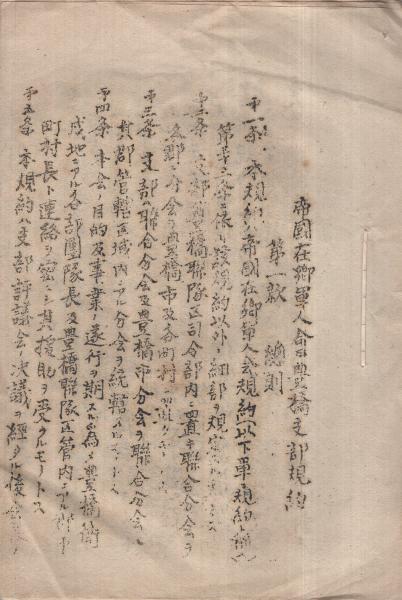 帝國在鄕軍人会豊橋支部規約
第一款 總則
第一條 本規約ハ帝國在鄕軍人会規約以下單ニ規約ト稱ス
第 條ニ依リ 規約以外ノ細部ヲ規定
第二條 支部ハ豊橋聯隊区司令部内ニ置キ聯合分会ヲ
各郡ニ分会ヲ豊橋市及各町村ニ置ク
第三條 支部ハ聯合分会及豊橋市分会ヲ聯合分会ハ
其郡管轄区域内ニアル分会ヲ統轄ス
第四條 本会ノ目的及事業ノ遂行ヲ期スル為メ豊橋衛
戍地ニアル各部團隊長及豊橋聯隊区管内ニアル
町村長ト連絡ヲ密ニシ其援助ヲ受クルモノトス
第五條 本規約ハ支部評議会ノ決議ヲ經タル後